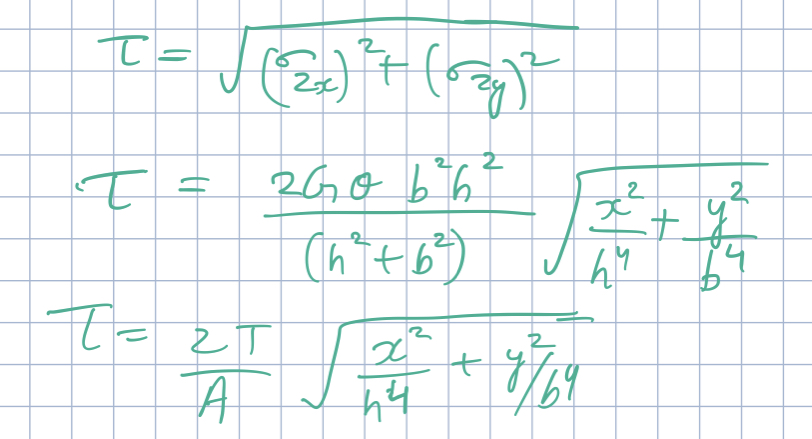 τ = √((σzx)² + (σzy)²)
τ = 2Gθ b²h² / (h² + b²) √(x²/h⁴ + y²/b⁴)
τ = 2T/A √(x²/h⁴ + y²/b⁴)